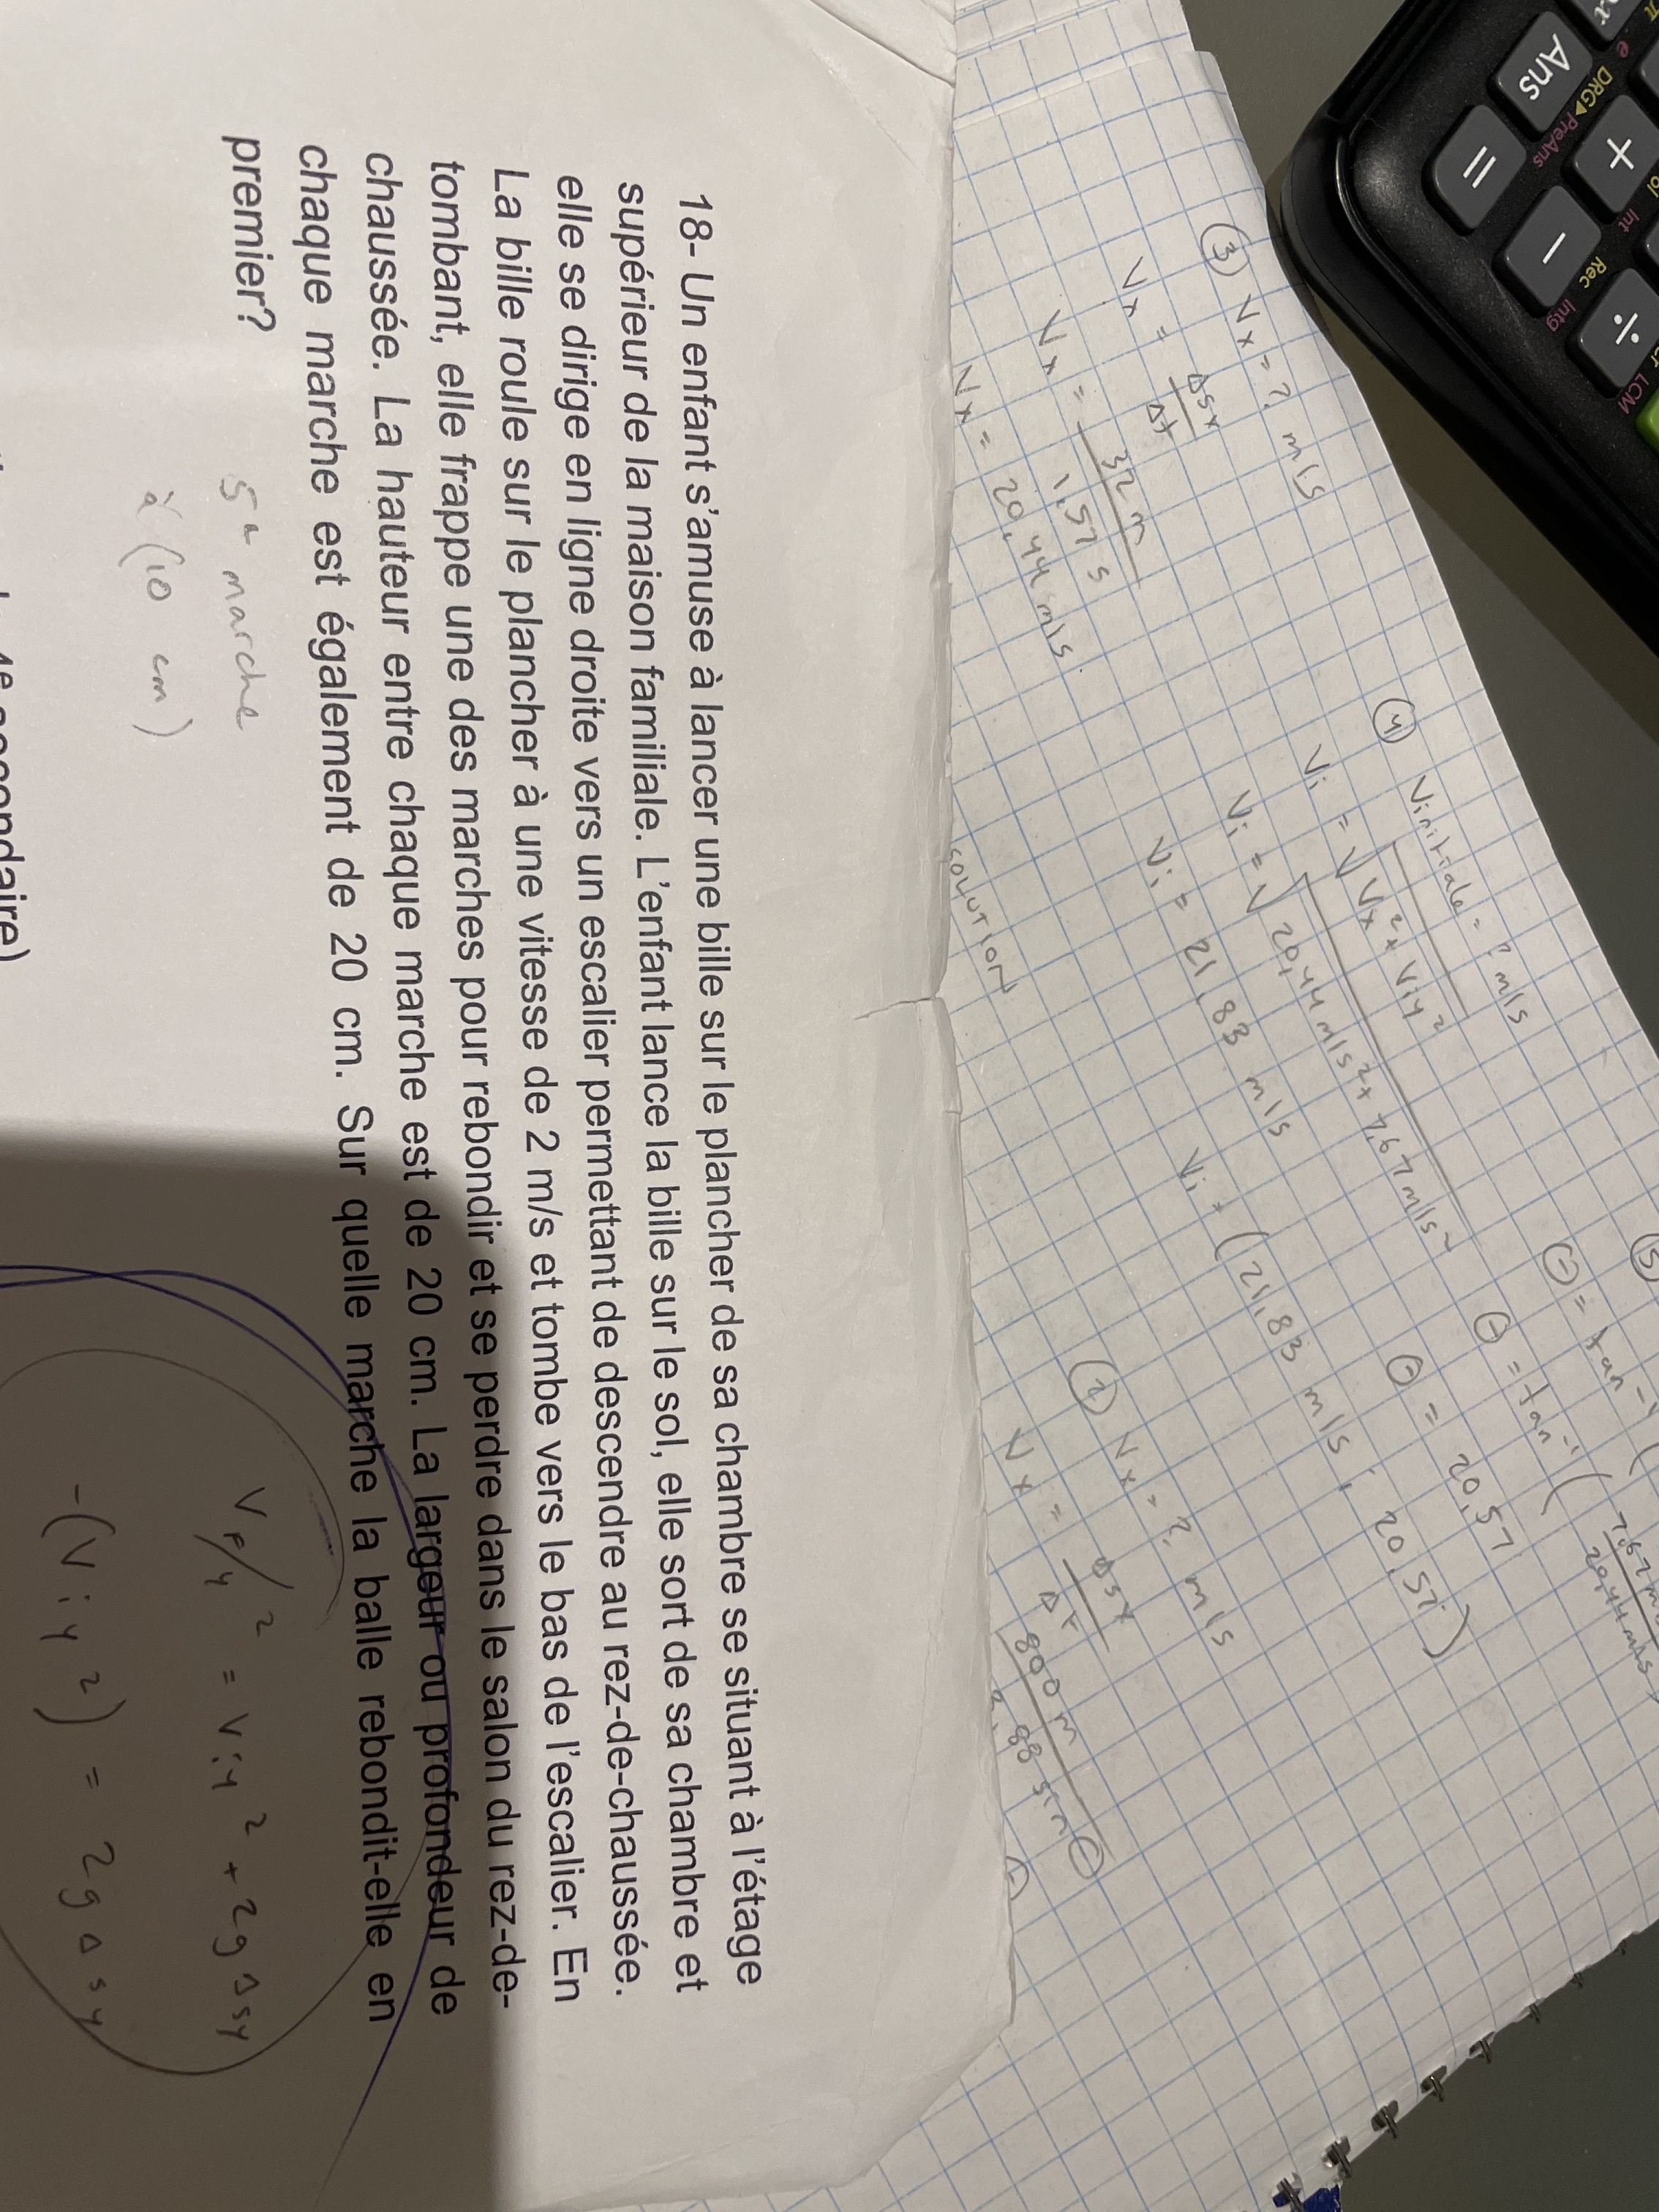 18- Un enfant s'amuse à lancer une bille sur le plancher de sa chambre se situant à l'étage
supérieur de la maison familiale. L'enfant lance la bille sur le sol, elle sort de sa chambre et
elle se dirige en ligne droite vers un escalier permettant de descendre au rez-de-chaussée.
La bille roule sur le plancher à une vitesse de 2 m/s et tombe vers le bas de l'escalier. En
tombant, elle frappe une des marches pour rebondir et se perdre dans le salon du rez-de-
chaussée. La hauteur entre chaque marche est de 20 cm. La largeur ou profondeur de
chaque marche est également de 20 cm. Sur quelle marche la balle rebondit-elle en
premier?
5e marche
à (10 cm)
Vf/y² = Viy² + 2gΔsy
-(Viy²) = 2gΔsy
③ Vx = ? m/s
Vx = Δsx
Δt
Vx = 32 m
1,57 s
Vx = 20,44 m/s
④ Vinitiale = ? m/s
Vi = √Vx² + Viy²
Vi = √20,44 m/s² + 7,67 m/s²
Vi = 21,83 m/s
SOLUTION
⑤
θ = tan-1 (
θ = tan-1 (7,67 m/
20,44 m/s)
θ = 20,57
Vi = (21,83 m/s ; 20,57°)
② Vx = ? m/s
Vx = Δsx
Δt
800 m
Ans
+
-
=
÷
DRG▸
PreAns
Int
Rec
Intg
LCM
e
π